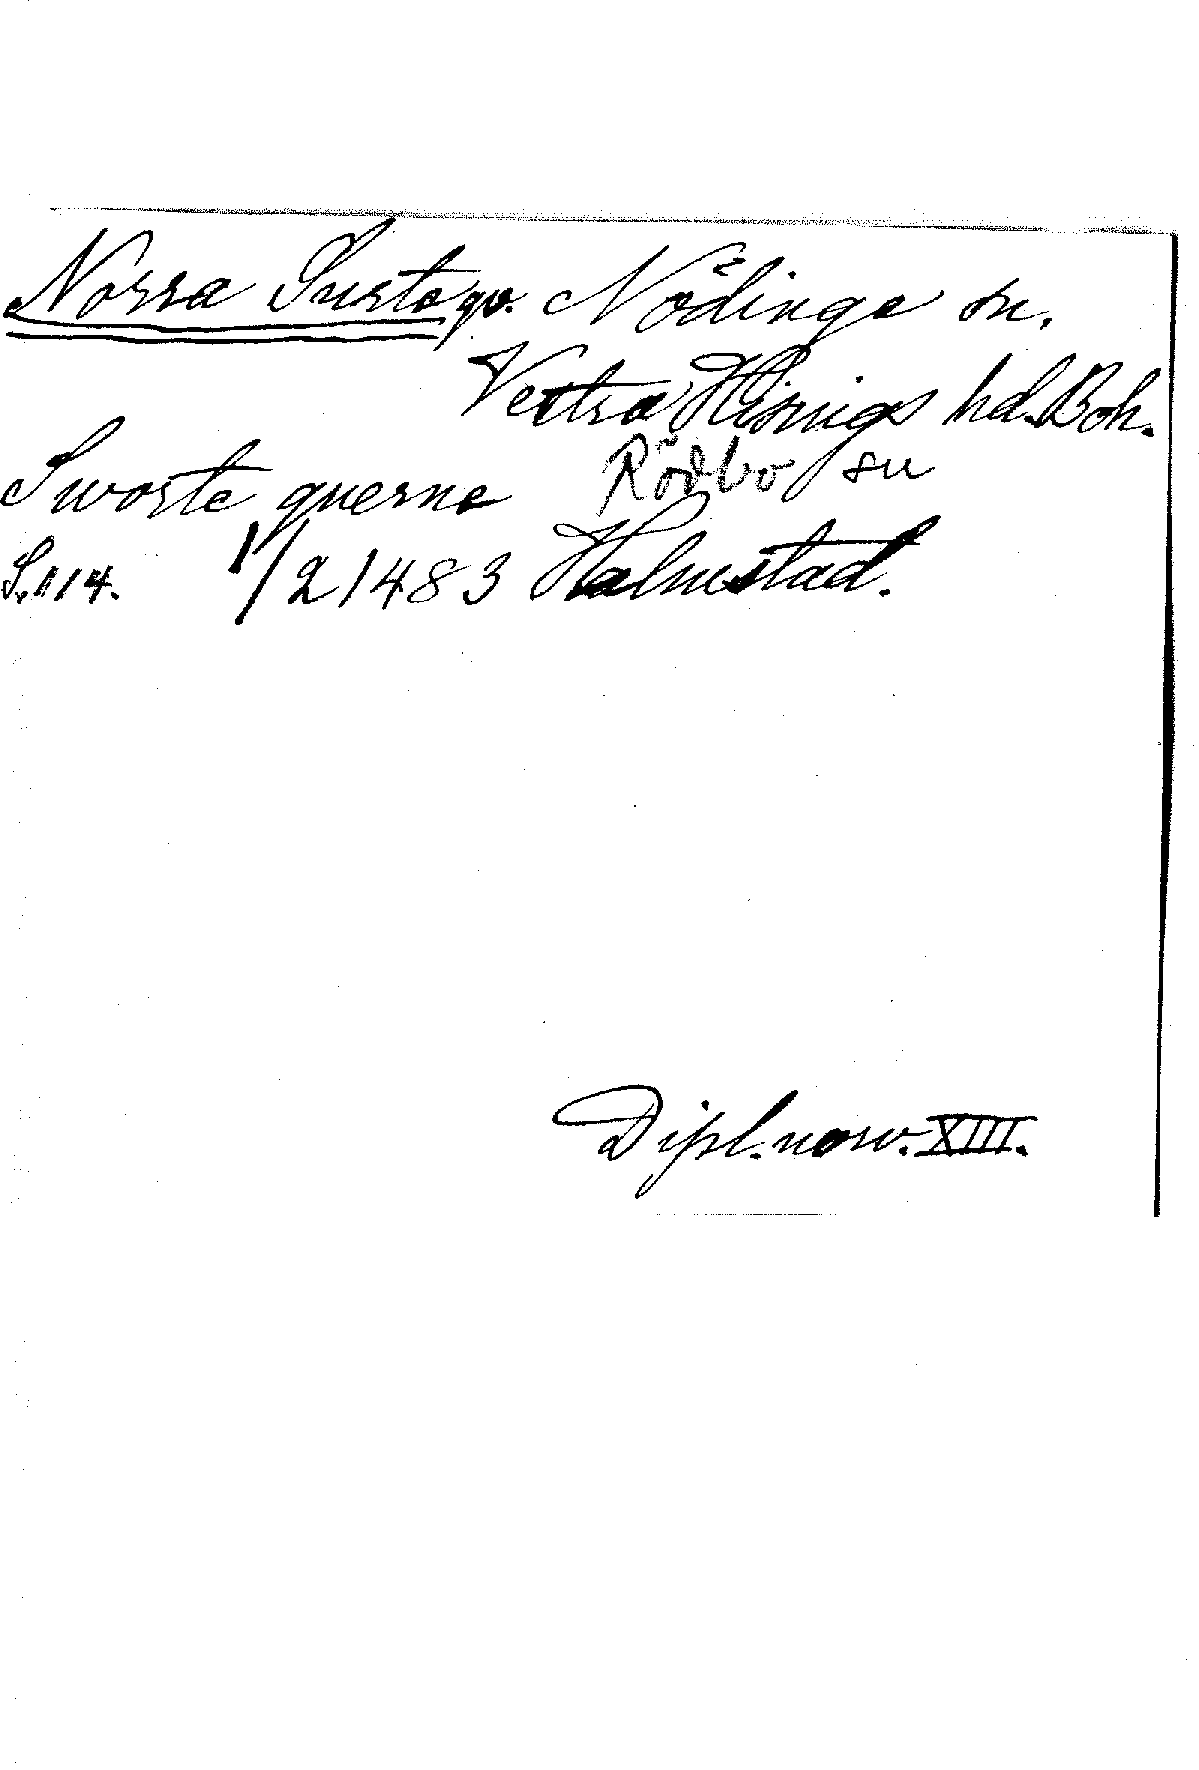 Norra Surte qv. Nödinge sn.
Vestra Hisings hd. Boh.
Rödbo sn
Sworte querne
S. 114. 1/2 1483 Halmstad.
Dipl. norv. XIII.